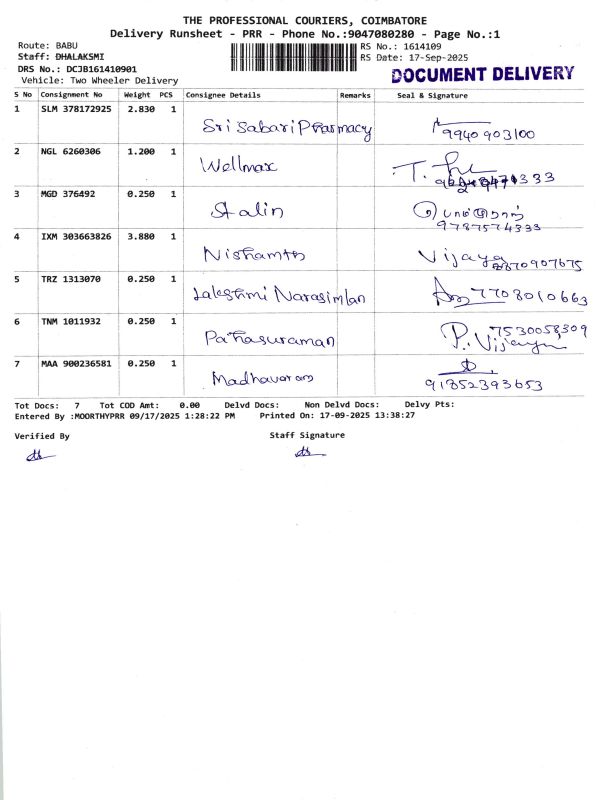 THE PROFESSIONAL COURIERS, COIMBATORE
Delivery Runsheet - PRR - Phone No.:9047080280 - Page No.:1
Route: BABU
RS No.: 1614109
Staff: DHALAKSMI
RS Date: 17-Sep-2025
DRS No.: DCJB161410901
DOCUMENT DELIVERY
Vehicle: Two Wheeler Delivery
S No Consignment No Weight PCS Consignee Details Remarks Seal & Signature
1 SLM 378172925 2.830 1 Sri Sabari Pharmacy 9940903100
2 NGL 6260306 1.200 1 Wellmax
3 MGD 376492 0.250 1 Stalin 9787574333
4 IXM 303663826 3.880 1 Nishamth Vijaya
5 TRZ 1313070 0.250 1 Lakshmi Narasimlan 7708010663
6 TNM 1011932 0.250 1 Pahasuraman 7530058309
P. Vijayan
7 MAA 900236581 0.250 1 Madhavaram 91852393653
Tot Docs: 7 Tot COD Amt: 0.00 Delvd Docs: Non Delvd Docs: Delvy Pts:
Entered By :MOORTHYPRR 09/17/2025 1:28:22 PM Printed On: 17-09-2025 13:38:27
Verified By Staff Signature